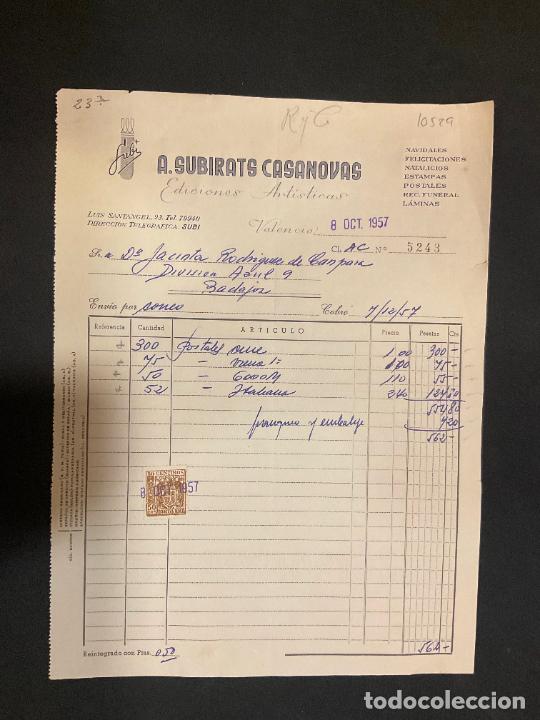 23
RyC
10529
Subi
A. SUBIRATS CASANOVAS
Ediciones Artísticas
NAVIDALES
FELICITACIONES
NATALICIOS
ESTAMPAS
POSTALES
REC. FUNERAL
LÁMINAS
LUIS SANTANGEL, 23. Tel. 70940
DIRECCION TELEGRAFICA: SUBI
Valencia, 8 OCT. 1957
Cl. AC N.º 5243
Sr. Dª Jacinta Rodriguez de
Division Azul 9
Badajoz
Envio por correo Cobro 7/12/57
Referencia Cantidad ARTICULO Precio Pesetas Cts
300 Postales 1,00 300 -
75 " 1,00 75 -
50 " 1,10 55 -
52 " Italiana 124,80
554,80
franqueo y embalaje 7,20
562 -
50 CENTIMOS
8 OCT. 1957
Reintegrado con Ptas. 0,50
562 -
todocoleccion.net